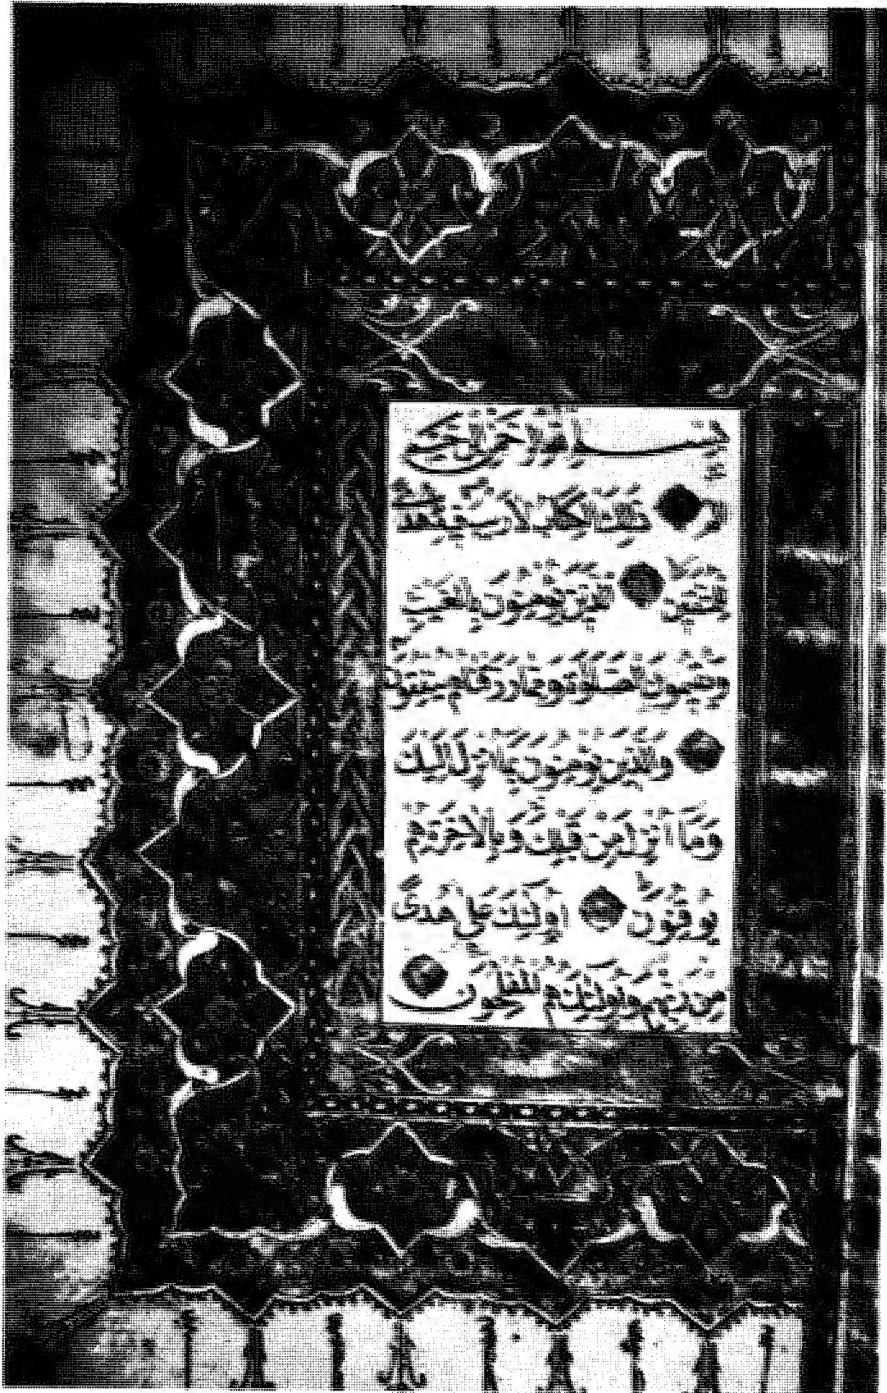 بِسْمِ اللَّهِ الرَّحْمَنِ الرَّحِيمِ
الم ذَلِكَ الْكِتَابُ لَا رَيْبَ فِيهِ هُدًى
لِلْمُتَّقِينَ الَّذِينَ يُؤْمِنُونَ بِالْغَيْبِ
وَيُقِيمُونَ الصَّلَوٰةَ وَمِمَّا رَزَقْنَاهُمْ يُنْفِقُونَ
وَالَّذِينَ يُؤْمِنُونَ بِمَا أُنْزِلَ إِلَيْكَ
وَمَا أُنْزِلَ مِنْ قَبْلِكَ وَبِالْآخِرَةِ هُمْ
يُوقِنُونَ أُولَٰئِكَ عَلَىٰ هُدًى
مِنْ رَبِّهِمْ وَأُولَٰئِكَ هُمُ الْمُفْلِحُونَ